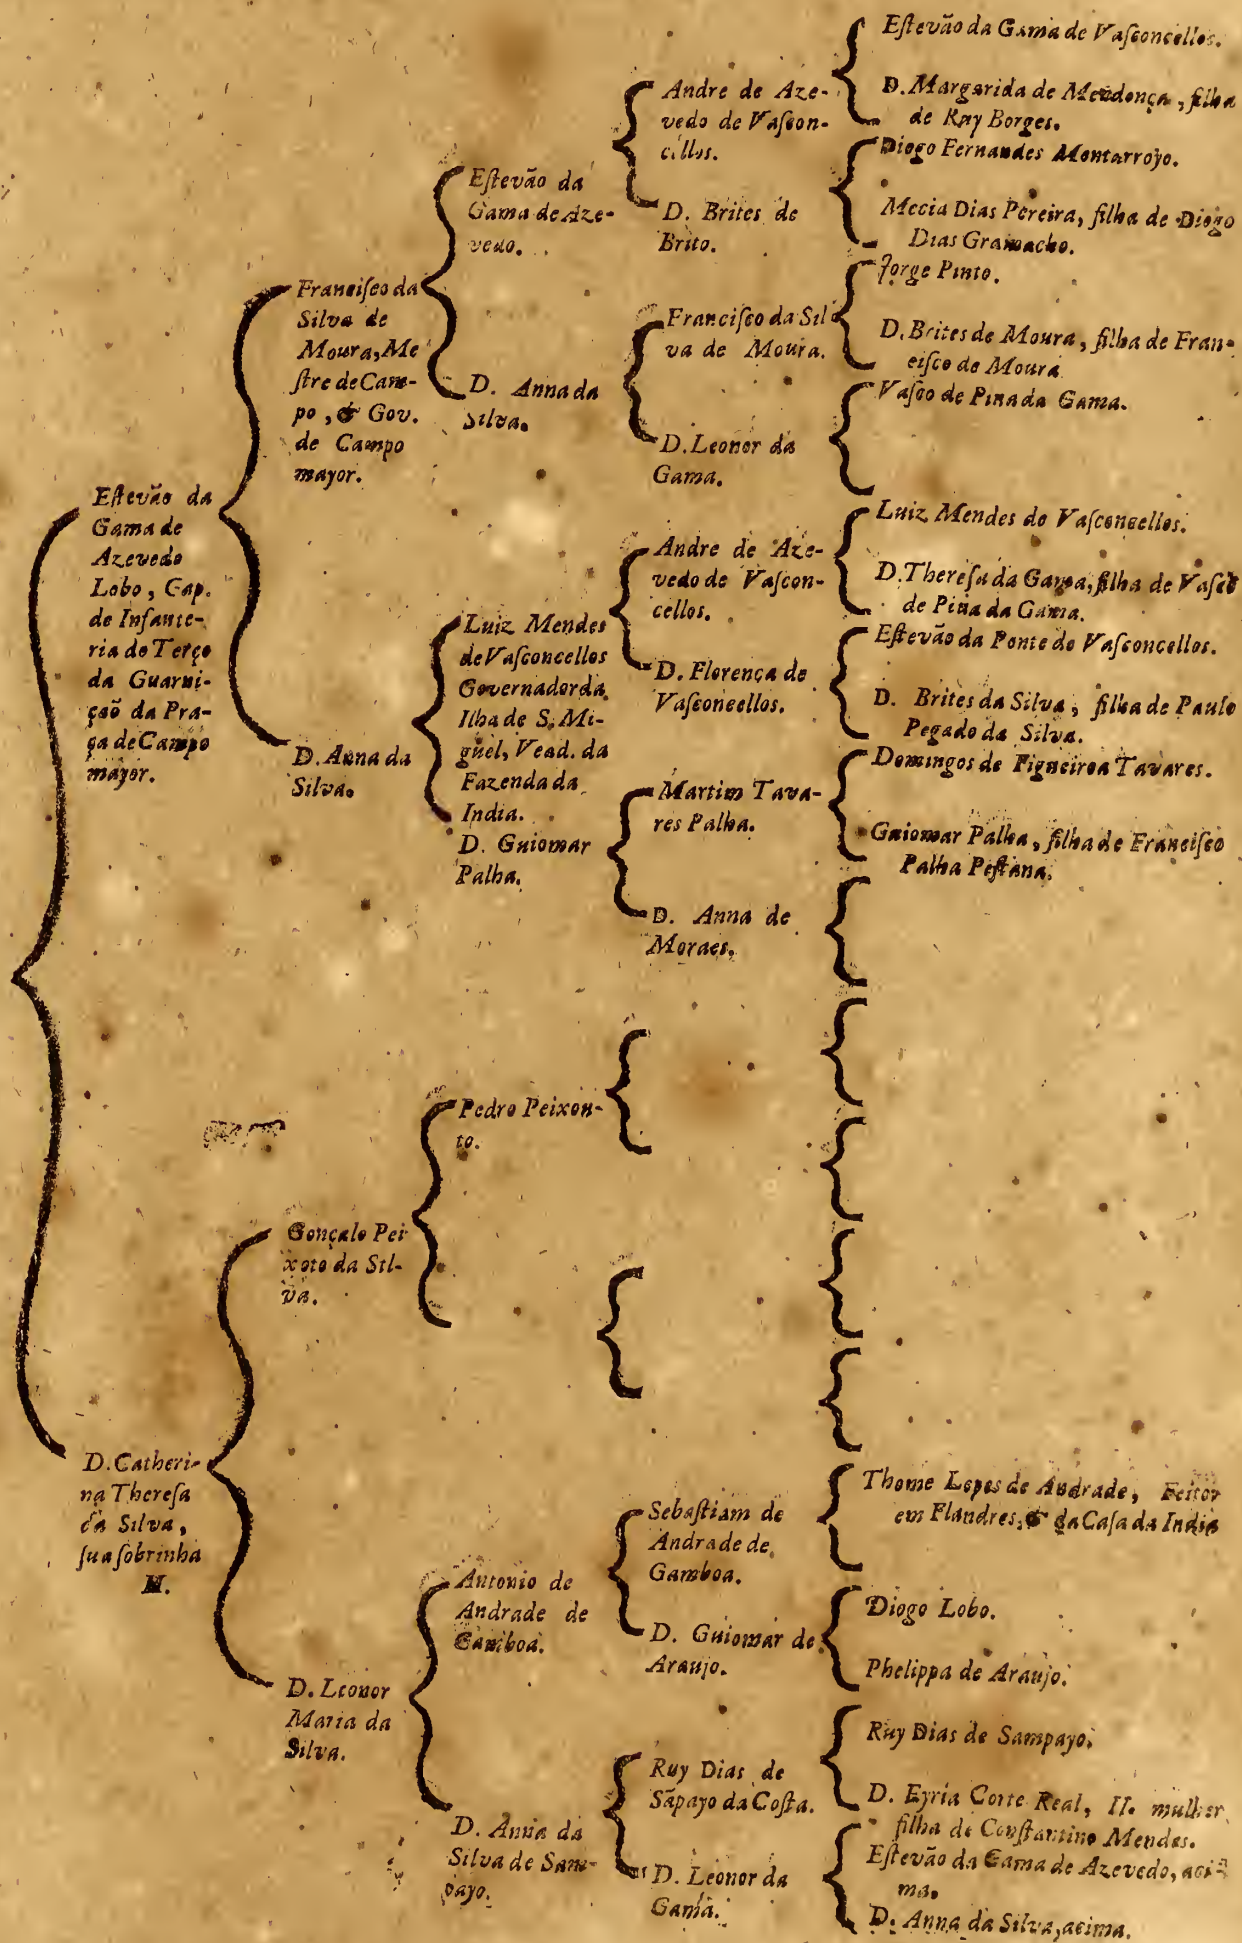 Eſtevão da
Gama de
Azevedo
Lobo, Cap.
de Infante-
ria do Terço
da Guarni-
çaõ da Pra-
ça de Campo
mayor.
D. Catheri-
na Thereſa
da Silva,
ſua ſobrinha
H.
Franciſco da
Silva de
Moura, Me
ſtre de Cam-
po, & Gov.
de Campo
mayor.
D. Anna da
Silva.
Gonçalo Pei
xoto da Sil-
va.
D. Leonor
Maria da
Silva.
Eſtevão da
Gama de Aze-
vedo.
D. Anna da
Silva.
Luiz Mendes
de Vaſconcellos
Governador da
Ilha de S. Mi-
guel, Vead. da
Fazenda da
India.
D. Guiomar
Palha.
Pedro Peixou-
to.
Antonio de
Andrade de
Gamboa.
D. Anna da
Silva de Sam-
payo.
Andre de Aze-
vedo de Vaſcon-
cellos.
D. Brites de
Brito.
Franciſco da Sil
va de Moura.
D. Leonor da
Gama.
Andre de Aze-
vedo de Vaſcon-
cellos.
D. Florença de
Vaſconcellos.
Martim Tava-
res Palha.
D. Anna de
Moraes.
Sebaſtiam de
Andrade de
Gamboa.
D. Guiomar de
Araujo.
Ruy Dias de
Sãpayo da Coſta.
D. Leonor da
Gama.
Eſtevão da Gama de Vaſconcellos.
D. Margarida de Mendonça, filha
de Ruy Borges.
Diogo Fernandes Montarroyo.
Mecia Dias Pereira, filha de Diogo
Dias Gramacho.
Jorge Pinto.
D. Brites de Moura, filha de Fran-
ciſco de Moura
Vaſco de Pina da Gama.
Luiz Mendes de Vaſconcellos.
D. Thereſa da Gama, filha de Vaſco
de Pina da Gama.
Eſtevão da Ponte de Vaſconcellos.
D. Brites da Silva, filha de Paulo
Pegado da Silva.
Domingos de Figueiroa Tavares.
Guiomar Palha, filha de Franciſco
Palha Peſtana.
Thome Lopes de Andrade, Feitor
em Flandres, & da Caſa da India
Diogo Lobo.
Phelippa de Araujo.
Ruy Dias de Sampayo.
D. Eyria Corte Real, II. mulher
filha de Conſtantino Mendes.
Eſtevão da Gama de Azevedo, aci-
ma.
D. Anna da Silva, acima.